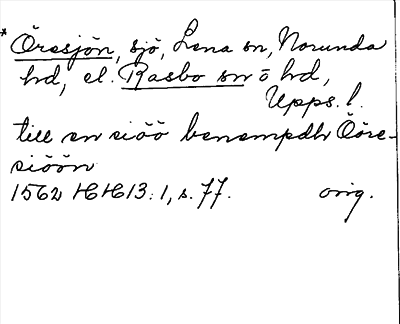 * Öresjön, sjö, Lena sn, Norunda
hd, el. Rasbo sn o hd,
Upps. l.
till en siöö benempdhÖöre-
siöön
1562 HH13:1, s. 77. orig.